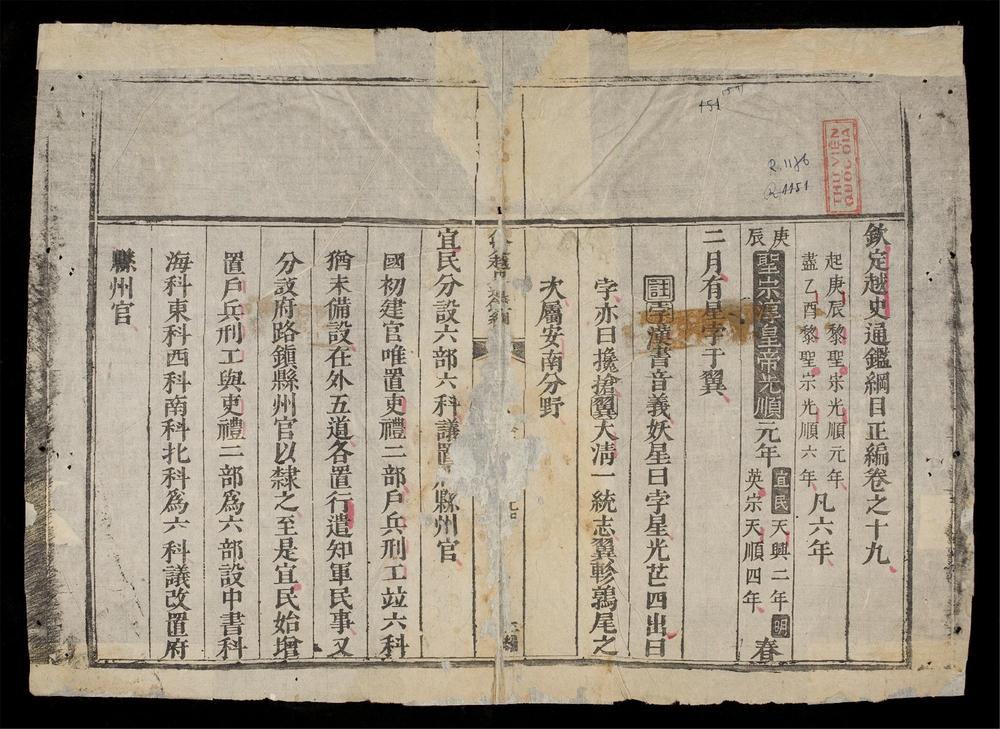 欽定越史通鑑綱目正編卷之十九
起庚辰黎聖宗光順元年
盡乙酉黎聖宗光順六年 凡六年
庚辰 聖宗淳皇帝光順元年 宜民天興二年明英宗天順四年 春
二月有星孛于翼
註孛漢書音義妖星曰孛星光芒四出曰
孛亦曰攙搶翼大清一統志翼軫鶉尾之
次屬安南分野
宜民分設六部六科議置府縣州官
國初建官唯置吏禮二部戶兵刑工竝六科
猶未備設在外五道各置行遣知軍民事又
分設府路鎮縣州官以隸之至是宜民始增
置戶兵刑工與吏禮二部爲六部設中書科
海科東科西科南科北科爲六科議改置府
縣州官
THƯ VIỆN
QUỐC GIA
R.1186
R.4451